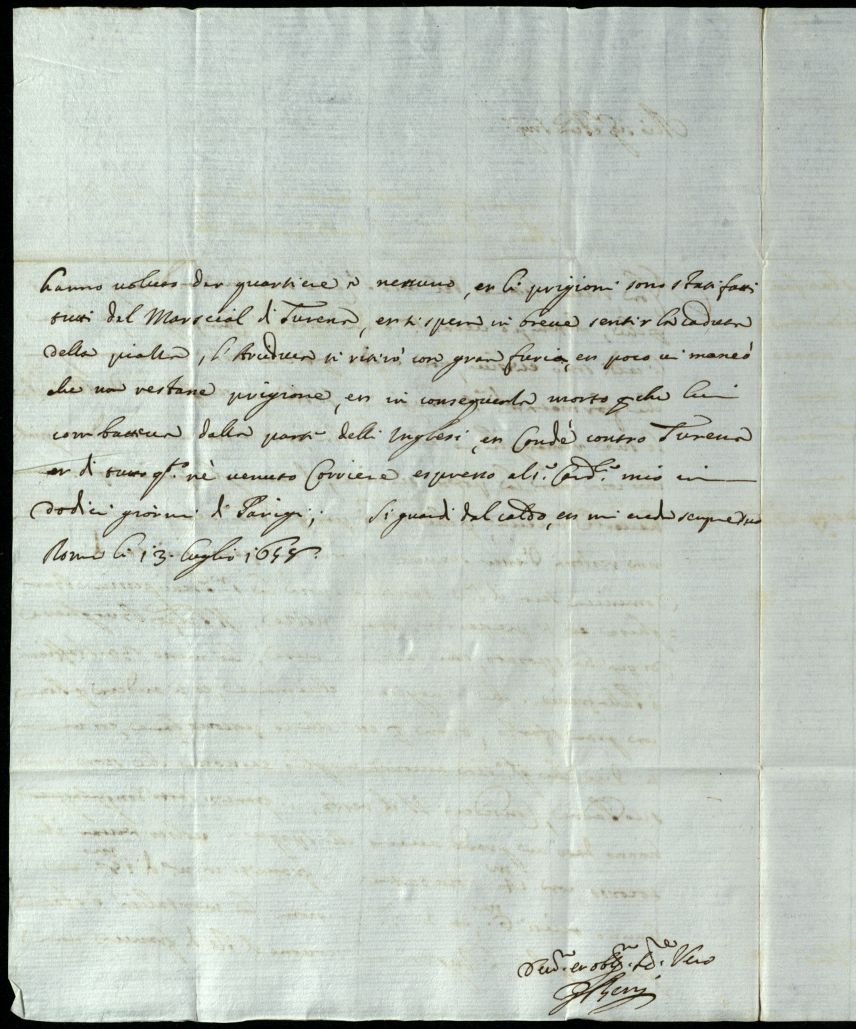 hanno voluto dar quartiere à nessuno, et li prigioni sono stati fatti
tutti dal Marescial di Turena, et si spera in breve sentir la caduta
della piazza, l'Arciduca si ritirò con gran furia, et poco vi mancò
che non restasse prigione, et in conseguenza morto p che lui
combatteva dalla parte delli Inglesi, et Condé contro Turena
et di tutto q.to n'è venuto Corriere espresso al S.r Card.le mio in
dodici giorni di Parigi; Si guardi dal caldo, et mi creda sempre suo
Roma li 13 luglio 1658.
et obl.mo Vero